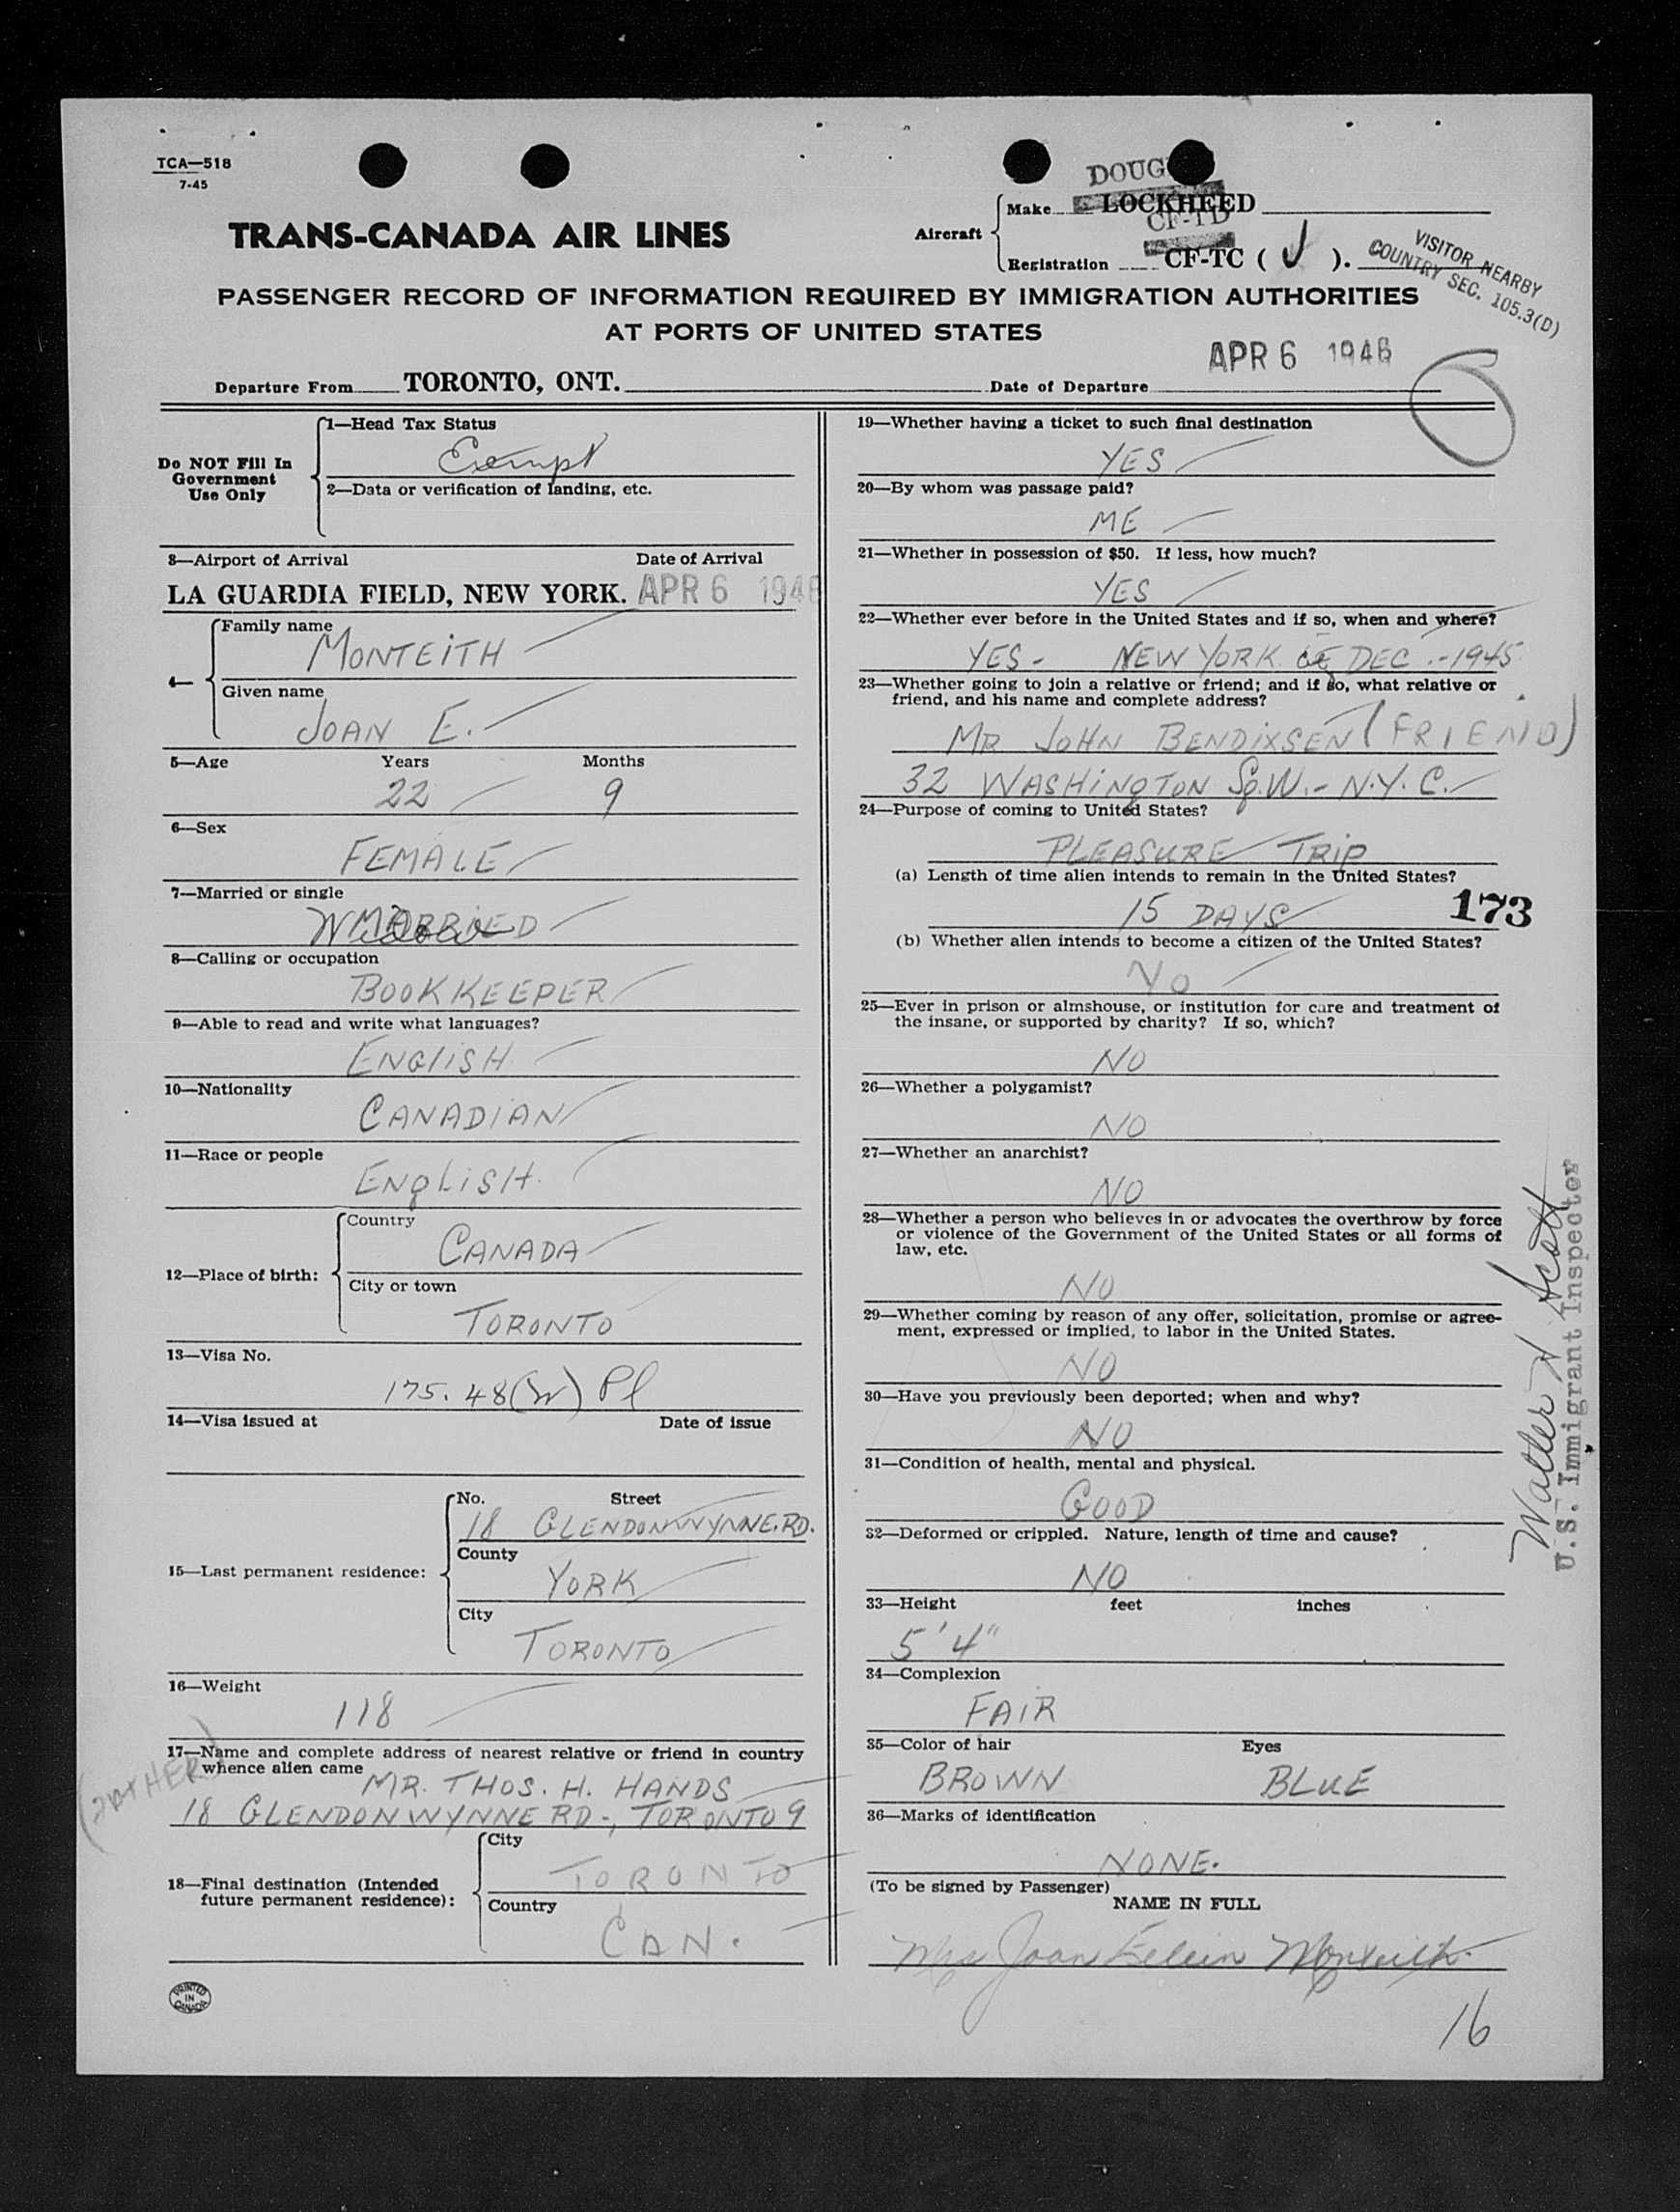 TCA—518
7-45
TRANS-CANADA AIR LINES
DOUG
Aircraft
Make LOCKHEED
CF-TD
Registration CF-TC ( J ).
VISITOR NEARBY
COUNTRY SEC. 105.3(D)
PASSENGER RECORD OF INFORMATION REQUIRED BY IMMIGRATION AUTHORITIES
AT PORTS OF UNITED STATES
APR 6 1946
Departure From TORONTO, ONT. Date of Departure
Do NOT Fill In
Government
Use Only
1—Head Tax Status
Exempt
2—Data or verification of landing, etc.
3—Airport of Arrival Date of Arrival
LA GUARDIA FIELD, NEW YORK. APR 6 1946
4—
Family name
MONTEITH
Given name
JOAN E.
5—Age Years Months
22 9
6—Sex
FEMALE
7—Married or single
MARRIED
Widow
8—Calling or occupation
BOOKKEEPER
9—Able to read and write what languages?
ENGLISH
10—Nationality
CANADIAN
11—Race or people
ENGLISH.
12—Place of birth:
Country
CANADA
City or town
TORONTO
13—Visa No.
175.48(W) Pl
14—Visa issued at Date of issue
15—Last permanent residence:
No. Street
18 GLENDONWYNNE.RD.
County
YORK
City
TORONTO
16—Weight
118
17—Name and complete address of nearest relative or friend in country
whence alien came
MR. THOS. H. HANDS
18 GLENDONWYNNE RD-, TORONTO 9
(FATHER)
18—Final destination (Intended
future permanent residence):
City
TORONTO
Country
CAN.
PRINTED
IN
CANADA
19—Whether having a ticket to such final destination
YES
20—By whom was passage paid?
ME
21—Whether in possession of $50. If less, how much?
YES
22—Whether ever before in the United States and if so, when and where?
YES - NEW YORK DEC.-1945
23—Whether going to join a relative or friend; and if so, what relative or
friend, and his name and complete address?
MR JOHN BENDIXSEN (FRIEND)
32 WASHINGTON Sq.W.- N.Y.C.
24—Purpose of coming to United States?
PLEASURE TRIP
(a) Length of time alien intends to remain in the United States?
15 DAYS
173
(b) Whether alien intends to become a citizen of the United States?
NO
25—Ever in prison or almshouse, or institution for care and treatment of
the insane, or supported by charity? If so, which?
NO
26—Whether a polygamist?
NO
27—Whether an anarchist?
NO
28—Whether a person who believes in or advocates the overthrow by force
or violence of the Government of the United States or all forms of
law, etc.
NO
29—Whether coming by reason of any offer, solicitation, promise or agree-
ment, expressed or implied, to labor in the United States.
NO
30—Have you previously been deported; when and why?
NO
31—Condition of health, mental and physical.
GOOD
32—Deformed or crippled. Nature, length of time and cause?
NO
33—Height feet inches
5'4"
34—Complexion
FAIR
35—Color of hair Eyes
BROWN BLUE
36—Marks of identification
NONE.
(To be signed by Passenger)
NAME IN FULL
Mrs Joan Eileen Monteith.
16
Walter N Scott
U.S. Immigrant Inspector